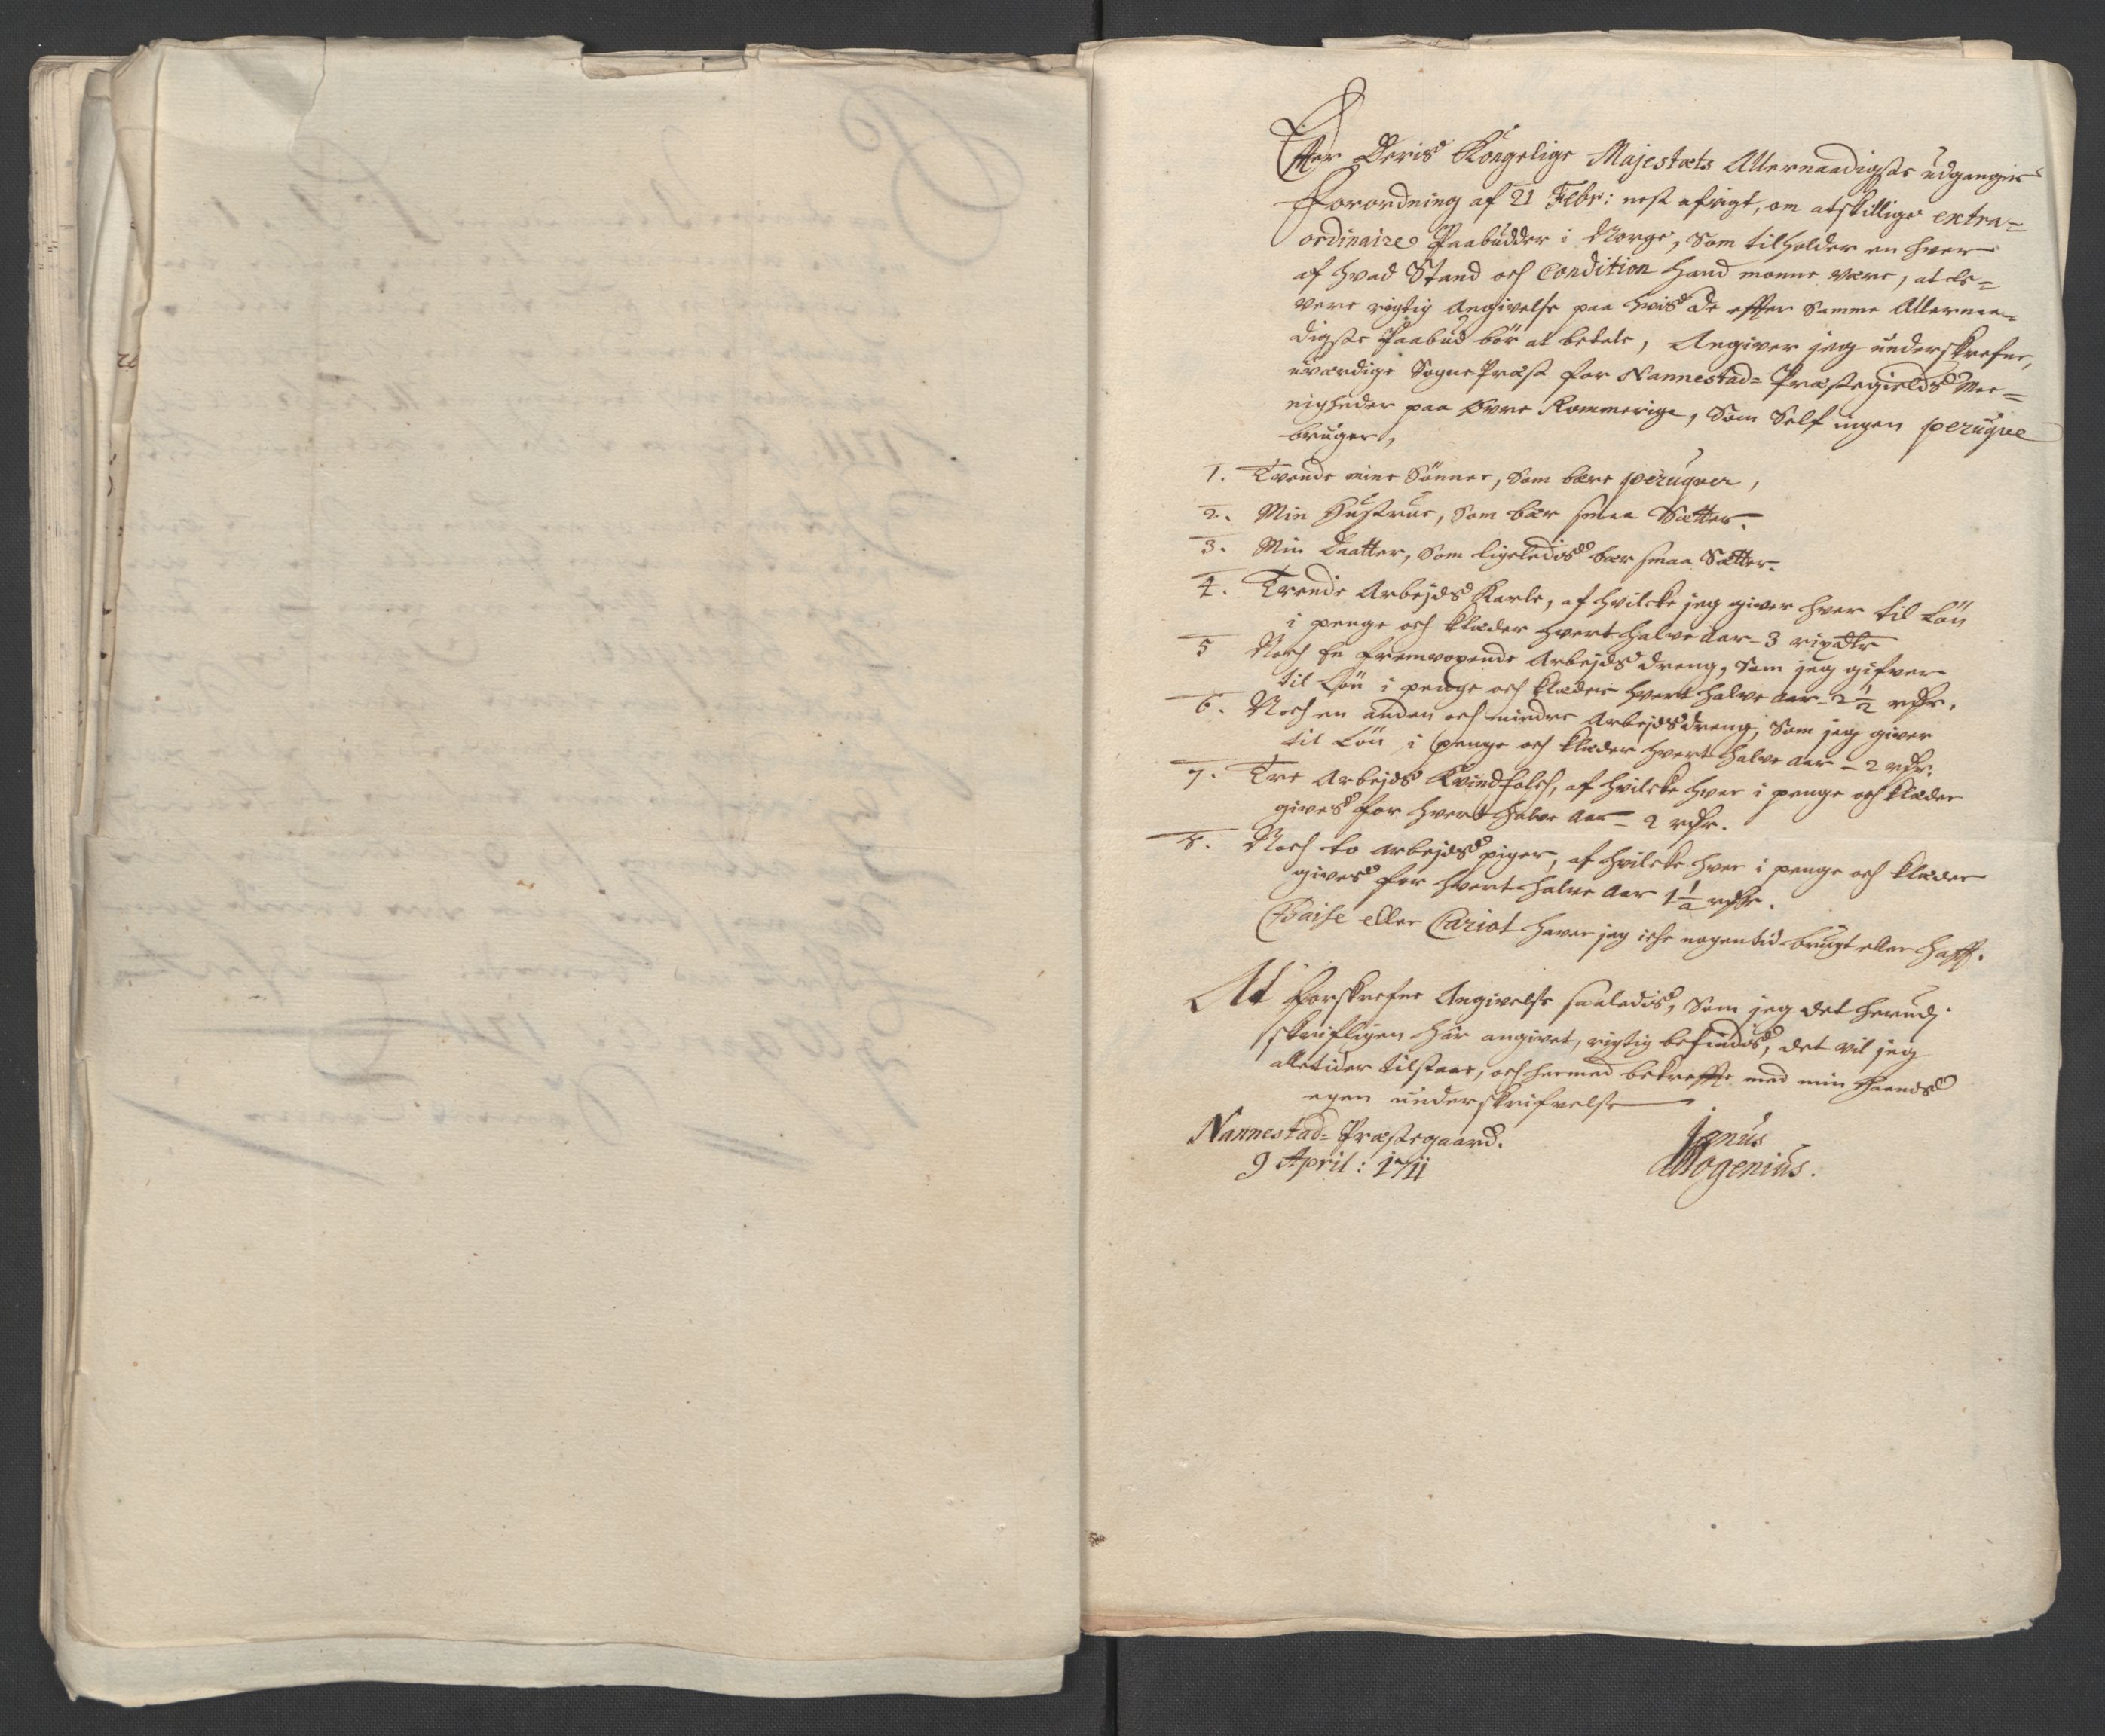 Effter Deris Kongelige Majestæts Allernaadigste udgangne
Forordning af 21 Febr: nest afvigt, om atskillige extra=
ordinaire Paabudder i Norge, Som tilholder en hver
af hvad Stand och Condition Hand monne være, at le=
vere rigtig Angivelse paa hvis de effter Samme Allernaa=
digste Paabud bör at betale, Angiver jeg underskrefne,
uværdige SognePræst for Nannestad= Præstegields Mee=
nigheder paa Øvre Rommerige, Som Self ingen peruque
bruger,
1. Tvende mine Sönner, Som bære peruquer,
2. Min Hustrue, Som bær smaa Sætter.
3. Min Daatter, Som ligeledis bær smaa Sætter.
4. Trende Arbejds Karle, af hvilcke jeg giver hver til Lön
i penge och klæder hvert halve Aar - 3 rixdlr
5 Noch En fremvoxende Arbejds dreng, Som jeg gifver
til Lön i penge och klæder hvert halve Aar - 2 1/2 rdlr.
6. Noch en anden och mindre Arbejdsdreng, Som jeg giver
til Lön i penge och klæder hvert halve Aar - 2 rdlr.
7. Tre Arbejds Kvindfolch, af hvilcke hver i penge och klæder
gives for hvert halve Aar - 2 rdlr.
8. Noch to arbejds piger, af hvilcke hver i penge och klæder
gives for hvert halve Aar 1 1/2 rdlr.
Chaise eller Cariot haver jeg iche nogentid brugt eller hafft.
At forskrefne Angivelse saaledis, Som jeg det herudj
skrifftligen här angivet, rigtig befindis, det vil jeg
alletider tilstaae, och hermed bekreffte med min Haands
egen underskrifvelse
Nannestad= Præstegaard.
9 April: 1711
Mogenius.